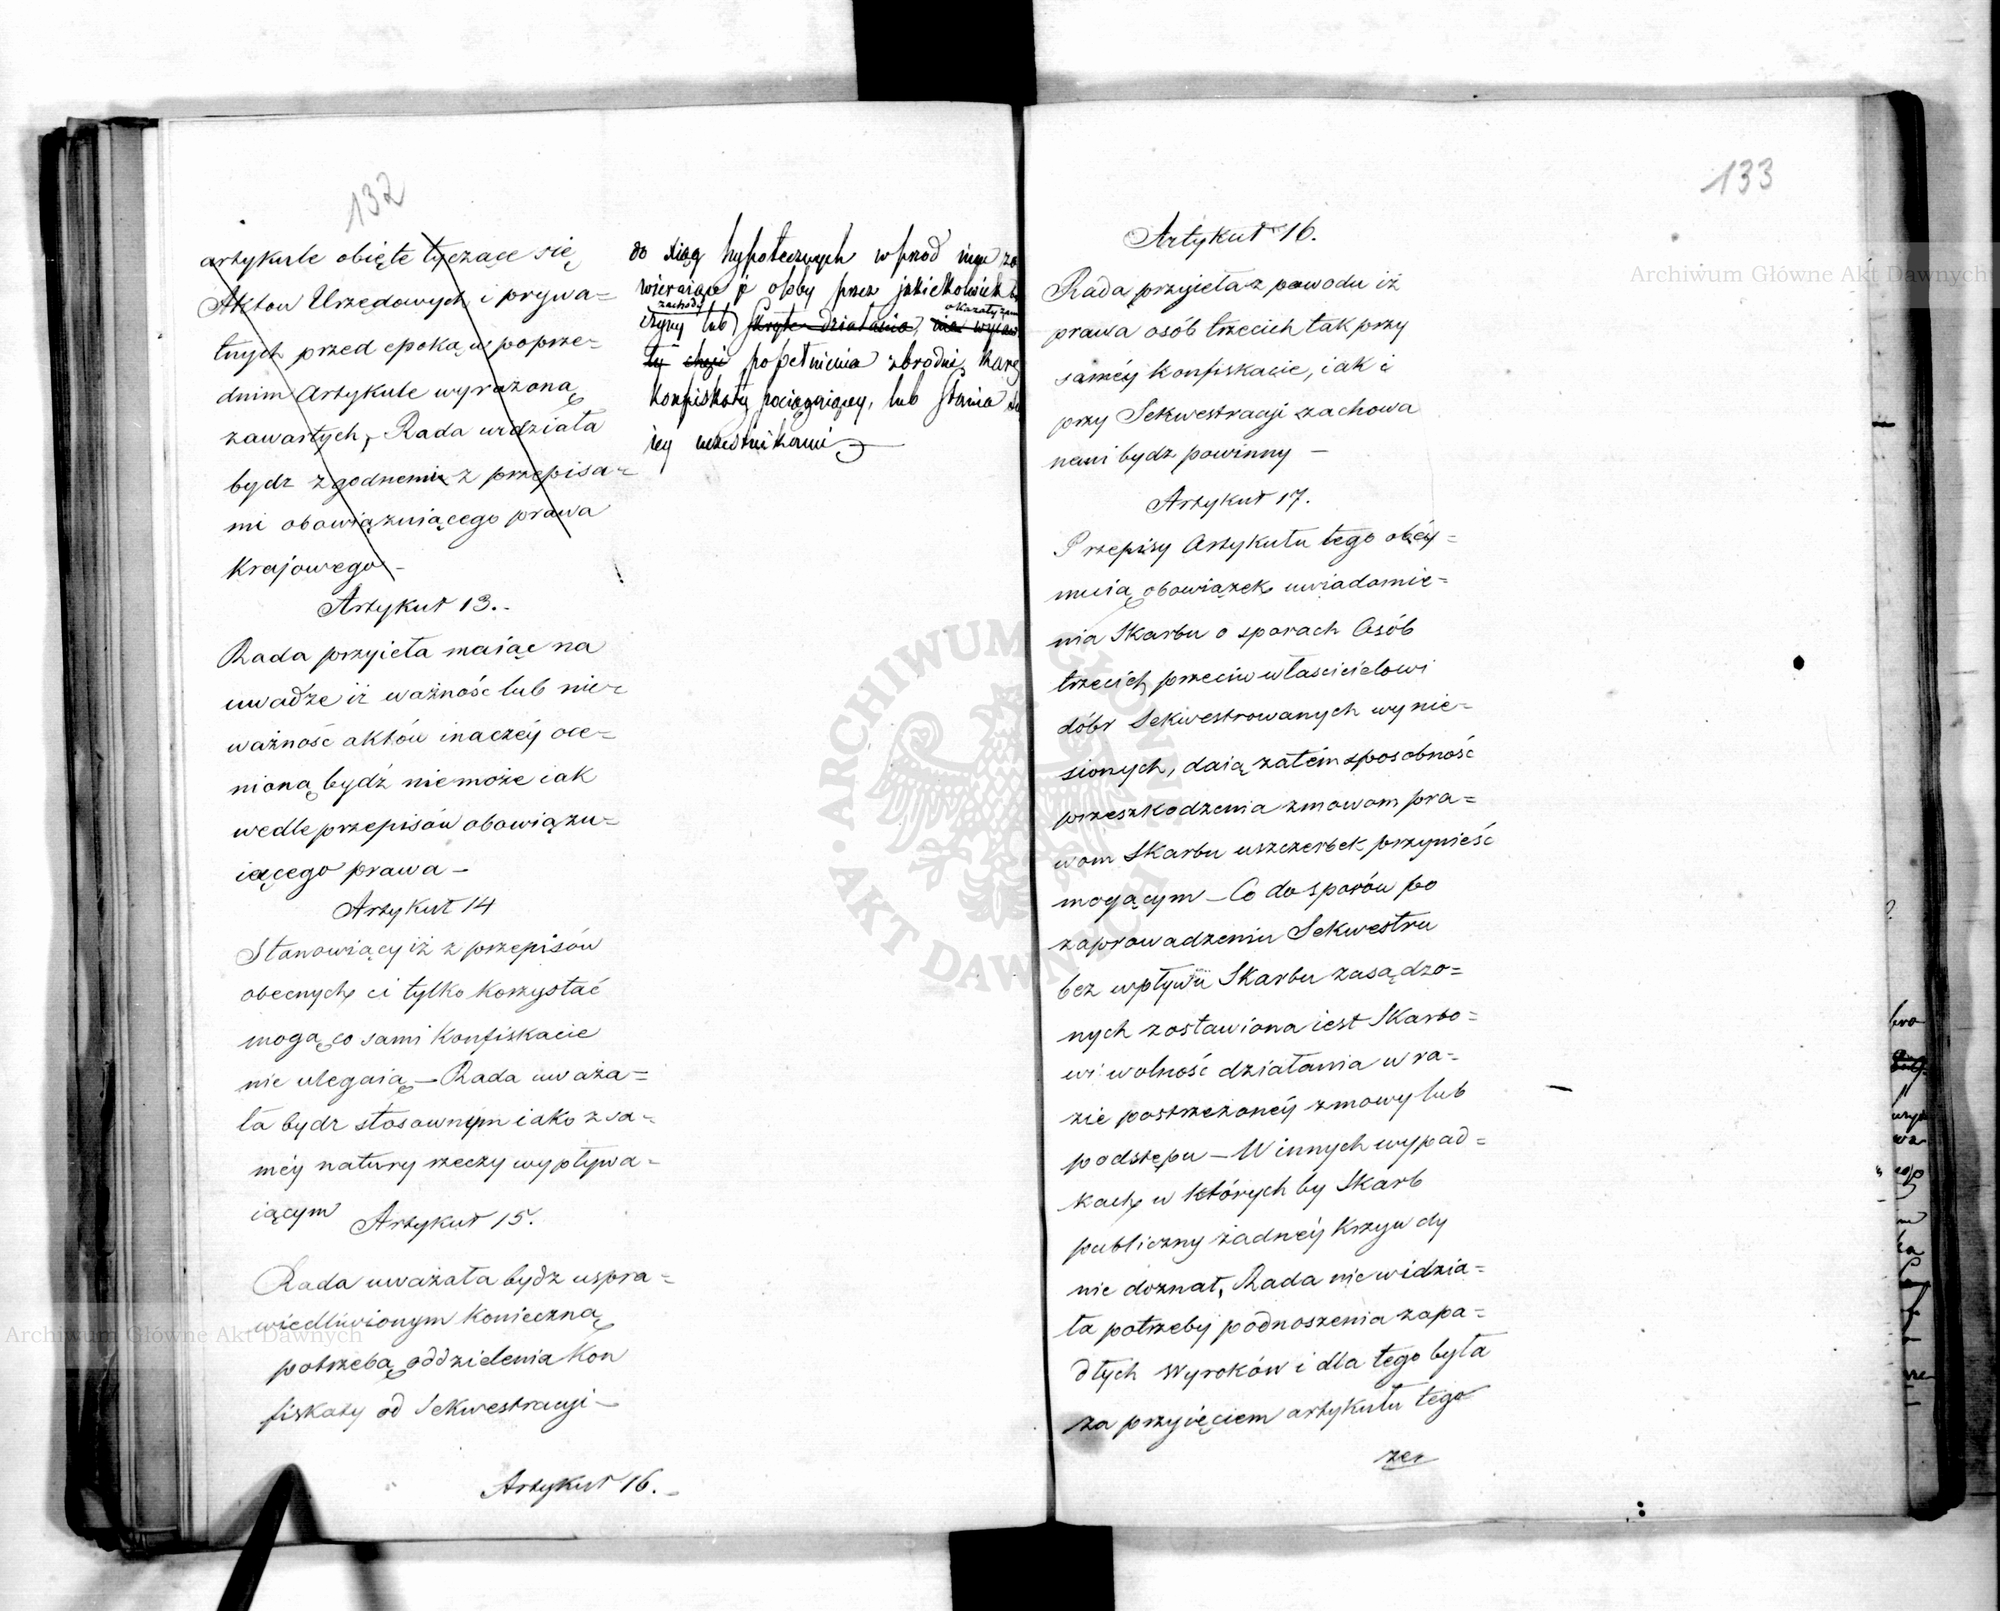 132
artykule obięte tyczące się
Aktow Urzędowych i prywa=
tnych przed epoką w poprze=
dnim Artykule wyrażoną
zawartych, Rada widziała
bydz zgodnemi z przepisa=
mi obowiązuiącego prawa
Krajowego –
Artykuł 13. –
Rada przyięła maiąc na
uwadze iż ważność lub nie=
ważność aktów inaczéy oce=
nioną bydź nie może iak
wedle przepisów obowiązu=
iącego prawa –
Artykuł 14
Stanowiący iż z przepisów
obecnych ci tylko korzystać
mogą co sami Konfiskacie
nie ulegaią – Rada uważa=
ła bydz stosownym iako z sa=
méy natury rzeczy wypływa=
iącym
Artykuł 15.
Rada uważała bydz uspra=
wiedliwionym konieczną
potrzebą oddzielenia Kon
fiskaty od Sekwestracyi –
Artykuł 16. –
do xiąg hypotecznych wprzod nim za
wieraiące je osoby przez jakiekolwiek
zachody okazały zam
czyny lub skryte działania, nie wydaw
ły chęci popełnienia zbrodni, karę
Konfiskaty pociągaiącey, lub stania
iey uczestnikami
133
Artykuł 16.
Rada przyięła z powodu iż
prawa osób trzecich tak przy
saméy Konfiskacie, iak i
przy Sekwestracyi zachowa
nemi bydz powinny –
Artykuł 17.
Przepisy Artykułu tego obéy=
muią obowiązek uwiadomie=
nia Skarbu o sporach Osób
trzecich przeciw właścicielowi
dóbr Sekwestrowanych wynie=
sionych, daią zatém sposobność
przeszkodzenia zmowom pra=
wom Skarbu uszczerbek przynieść
mogącym – Co do sporów po
zaprowadzeniu Sekwestru
bez wpływu Skarbu zasądzo=
nych zostawiona iest Skarbo=
wi wolność działania w ra=
zie postrzeżonéy zmowy lub
podstępu – W innych wypad=
kach w których by Skarb
publiczny żadnéy krzywdy
nie doznał, Rada nie widzia=
ła potrzeby podnoszenia zapa=
dłych Wyroków i dla tego była
za przyięciem artykułu tego
zer
Archiwum Główne Akt Dawnych
Archiwum Główne Akt Dawnych
ARCHIWUM GŁÓWNE AKT DAWNYCH